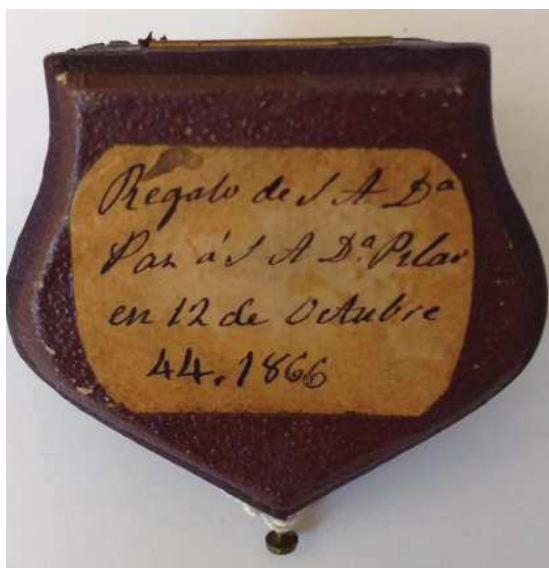 Regalo de S A Dª
Paz á S A Dª Pilar
en 12 de Octubre
44. 1866